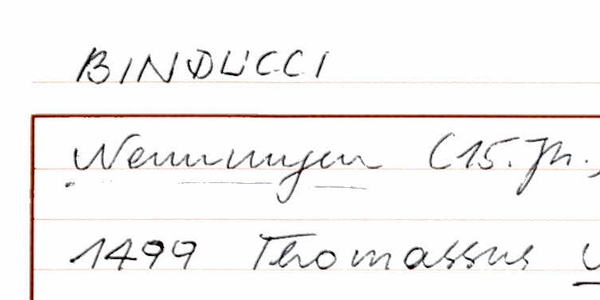 BINDUCCI
Nennungen (15. Jh.)
1499 Thomassus